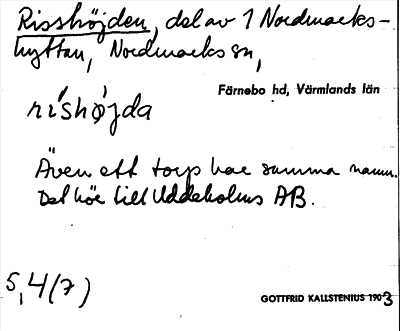 Risshöjden, del av 1 Nordmarks-
hyttan, Nordmarks sn,
Färnebo hd, Värmlands län
ríshø̀jda
Även ett torp har samma namn.
Det hör till Uddeholms AB.
5,4(7)
GOTTFRID KALLSTENIUS 1903